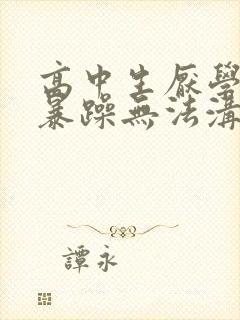 高中生厭學
暴躁無法溝
譚永